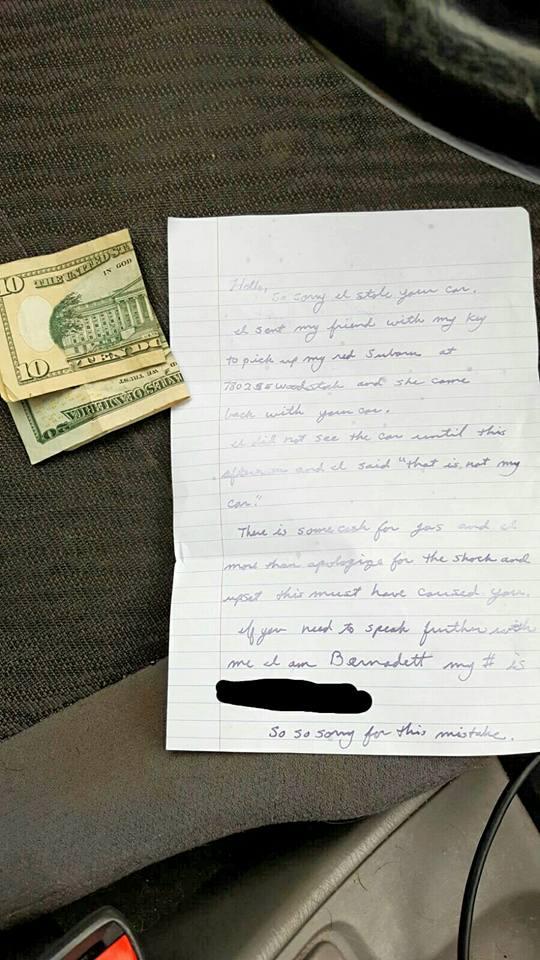 10 THE UNITED STA
IN GOD
10 TEN DO
WE TRUST
ES OF AMERICA
Hello,
So sorry I stole your car.
I sent my friend with my key
to pick up my red Subaru at
7802 SE Woodstock and she came
back with your car.
I did not see the car until this
afternoon and I said "that is not my
car."
There is some cash for gas and I
more than apologize for the shock and
upset this must have caused you.
If you need to speak further with
me I am Bernadett my # is
So so sorry for this mistake.